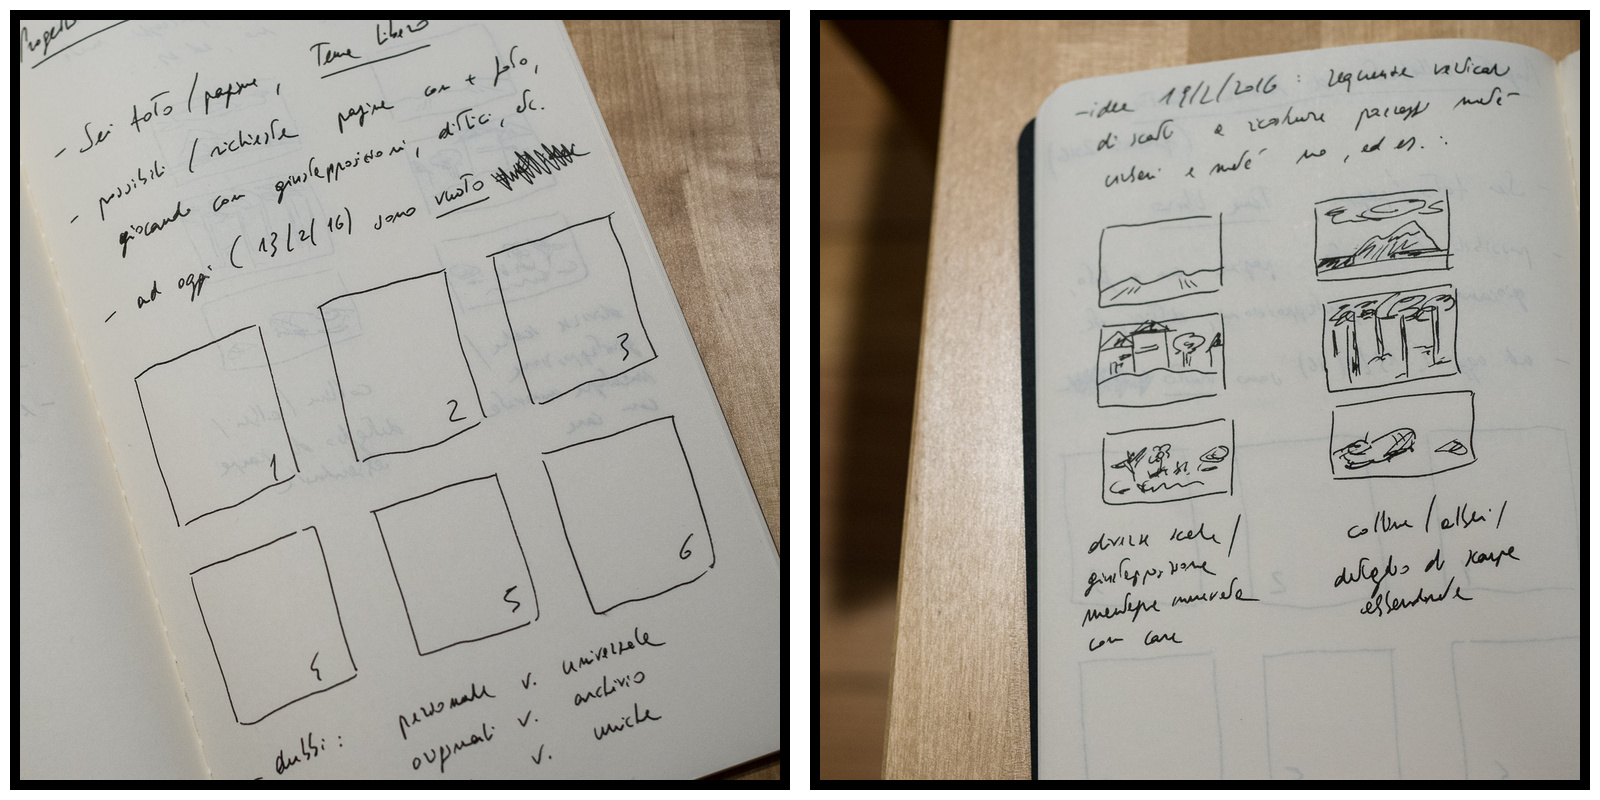 Progetto
Tema Libero
- Sei foto / pagine,
- possibili / richieste pagine con + foto,
giocando con giustapposizioni, dittici, etc.
- ad oggi (13/2/16) sono vuoto
1
2
3
4
5
6
- dubbi: personale v. universale
originali v. archivio
v. uniche
- idee 19/2/2016: sequenze verticali
di scatti a scalare paesaggi metà
urbani e metà no, ed es.:
diverse scale /
giustapposizione
montagne innevate
con case
colline / alberi /
dettaglio di scarpe